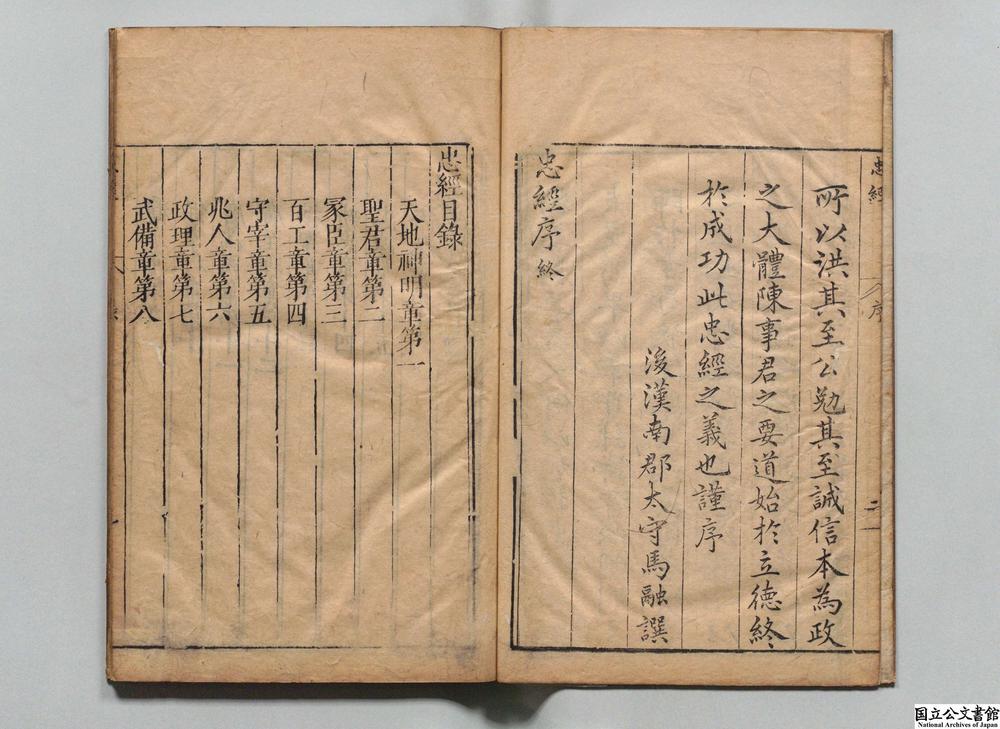 忠經
序
二
所以洪其至公勉其至誠信本為政
之大體陳事君之要道始於立德終
於成功此忠經之義也謹序
後漢南郡太守馬融譔
忠經序終
忠經目錄
天地神明章第一
聖君章第二
冢臣章第三
百工章第四
守宰章第五
兆人章第六
政理章第七
武備章第八
国立公文書館
National Archives of Japan